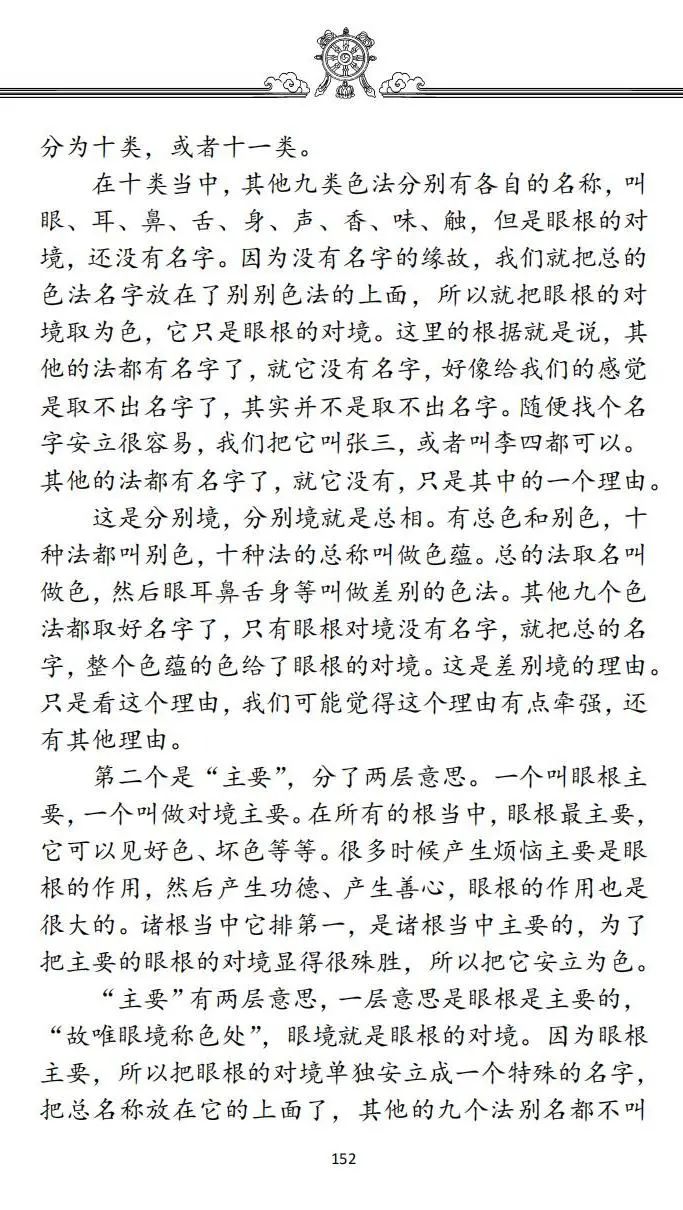 分为十类，或者十一类。
在十类当中，其他九类色法分别有各自的名称，叫
眼、耳、鼻、舌、身、声、香、味、触，但是眼根的对
境，还没有名字。因为没有名字的缘故，我们就把总的
色法名字放在了别别色法的上面，所以就把眼根的对
境取为色，它只是眼根的对境。这里的根据就是说，其
他的法都有名字了，就它没有名字，好像给我们的感觉
是取不出名字了，其实并不是取不出名字。随便找个名
字安立很容易，我们把它叫张三，或者叫李四都可以。
其他的法都有名字了，就它没有，只是其中的一个理由。
这是分别境，分别境就是总相。有总色和别色，十
种法都叫别色，十种法的总称叫做色蕴。总的法取名叫
做色，然后眼耳鼻舌身等叫做差别的色法。其他九个色
法都取好名字了，只有眼根对境没有名字，就把总的名
字，整个色蕴的色给了眼根的对境。这是差别境的理由。
只是看这个理由，我们可能觉得这个理由有点牵强，还
有其他理由。
第二个是“主要”，分了两层意思。一个叫眼根主
要，一个叫做对境主要。在所有的根当中，眼根最主要，
它可以见好色、坏色等等。很多时候产生烦恼主要是眼
根的作用，然后产生功德、产生善心，眼根的作用也是
很大的。诸根当中它排第一，是诸根当中主要的，为了
把主要的眼根的对境显得很殊胜，所以把它安立为色。
“主要”有两层意思，一层意思是眼根是主要的，
“故唯眼境称色处”，眼境就是眼根的对境。因为眼根
主要，所以把眼根的对境单独安立成一个特殊的名字，
把总名称放在它的上面了，其他的九个法别名都不叫
152